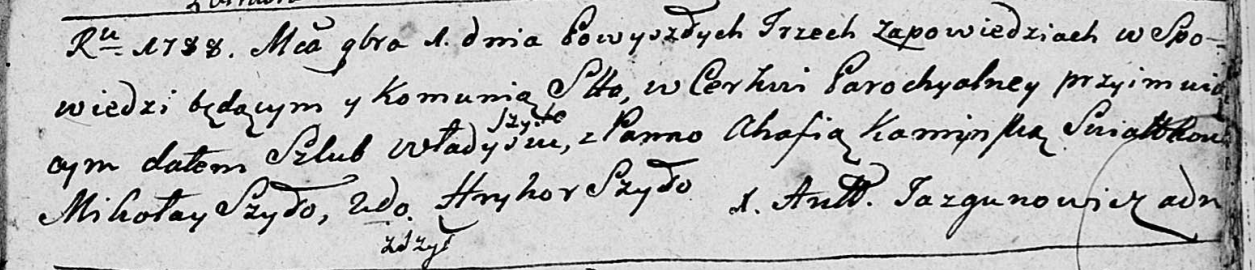 Ru 1788. Mca 9bra 1. dnia Powyszłych Trzech Zapowiedziach w Spo-
wiedzi będącym y Komunią Stto, w Cerkwi Parochyalney przyimuią
Szyło
cym dałem Szlub Władysiu, z Panno Ahafią Kamińską Swiattkow
Mikołay Szyło, 2do. Hryhor Szydo X. Antt. Jazgunowicz adn